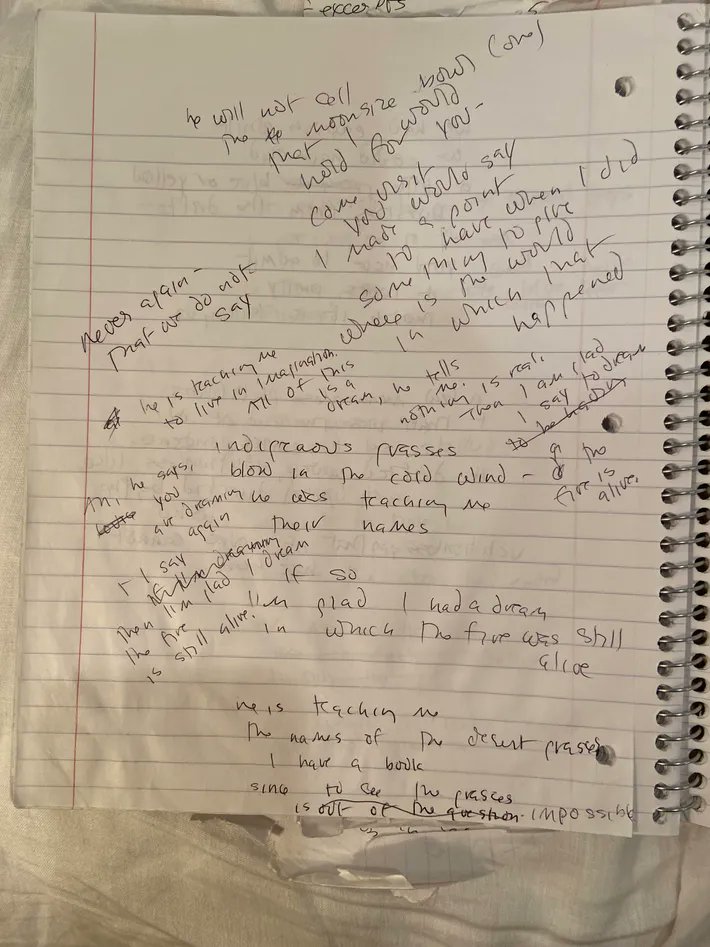 excerpts
he will not sell
the moonsize bowl (one)
that I would
hold for you-
come visit
you would say
I made a point
to have when I did
something to give
where is the world
in which that
happened
never again-
that we do not
say
he is teaching me
to live in imagination.
All of this
is a
dream, he tells
me.
nothing is real.
Then I am glad
I say to dream
to be
the
fire is
alive.
indigenous grasses
blow in the cold wind-
he was teaching me
their names
Ah, he says,
you
are dreaming
again
I say
dreaming
then I'm glad I dream
the fire
is still alive.
if so
I'm glad I had a dream
in which the fire was still
alive
he is teaching me
the names of the desert grasses
I have a book
since to see the grasses
is out of the question. IMPOSSIBLE